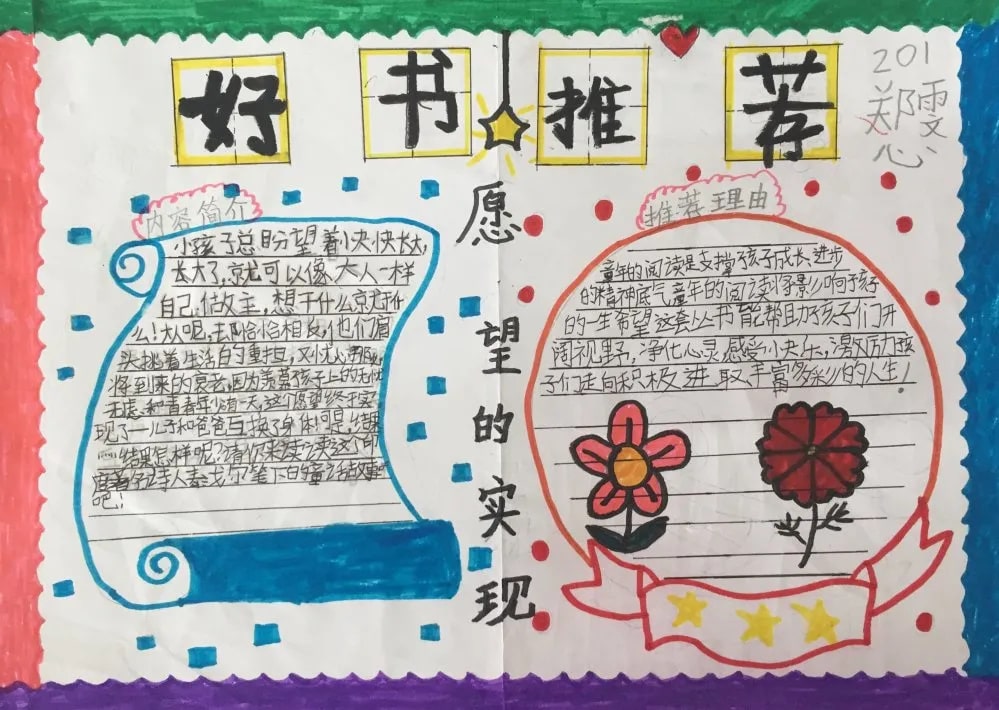 好书推荐
201
郑雯
心
愿望的实现
内容简介
小孩子总盼望着快快长大,
长大了,就可以像大人一样
自己做主,想干什么就干什
么!大人呢,去恰恰相反,他们肩
头挑着生活的重担,又忧心
将到来的衰老,因为羡慕孩子的无忧
无虑和青春年少有一天,这个愿望终于实
现了一儿子和爸爸互换了身体!可是,结果
结果怎样呢?请你来读一读这个印
度著名诗人泰戈尔笔下的童话故事
吧!
推荐理由
童年的阅读是支撑孩子成长、进步
的精神底气童年的阅读将影响孩子
的一生希望这套丛书能帮助孩子们开
阔视野,净化心灵感受快乐,激励孩
子们走向积极进取丰富多彩的人生!